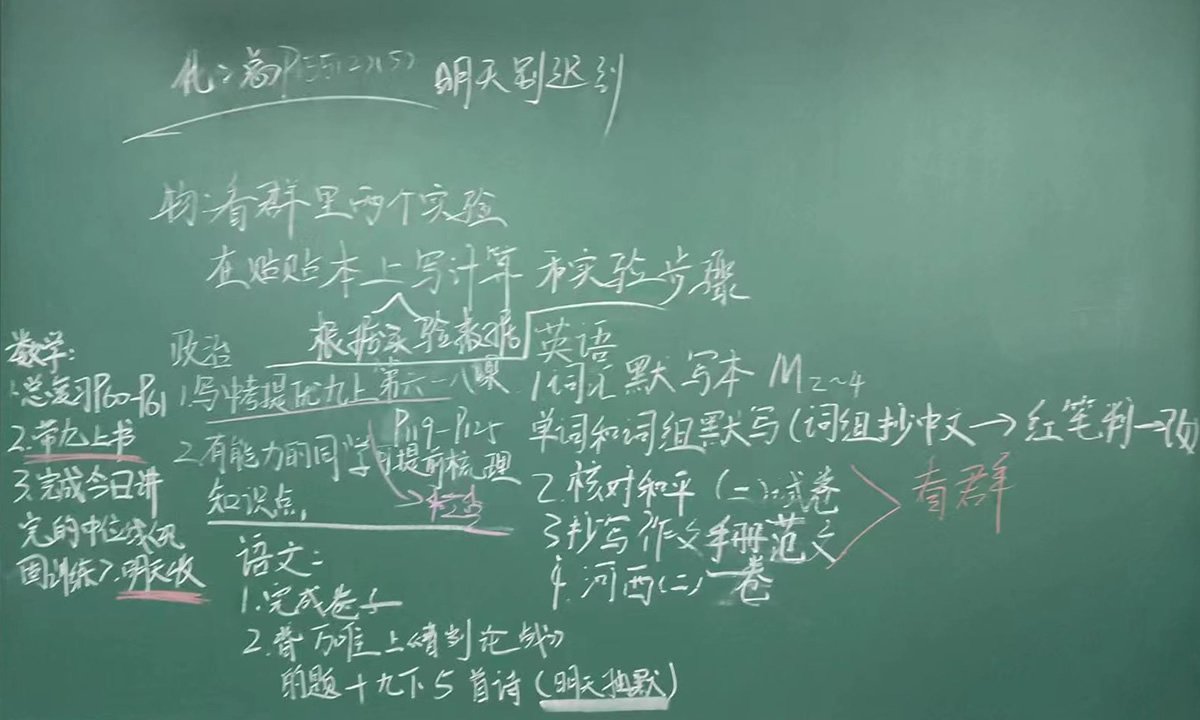 明天别迟到
物:看群里两个实验
在贴贴本上写计算和实验步骤
根据实验数据
数学:
1.总复习P60-P61
2.带九上书
3.完成今日讲
完的中位线巩
固训练7.明天收
政治
1.写中考提优九上第六-八课
P119-P125
2.有能力的同学可提前梳理
知识点,
英语
1.词汇默写本M2~4
单词和词组默写(词组抄中文→红笔判→改
2.核对和平(二)试卷
3.抄写作文手册范文
4.河西(二)一卷
看群
语文:
1.完成卷子
2.背万唯上《曹刿论战》
的题+九下5首诗(明天抽默)